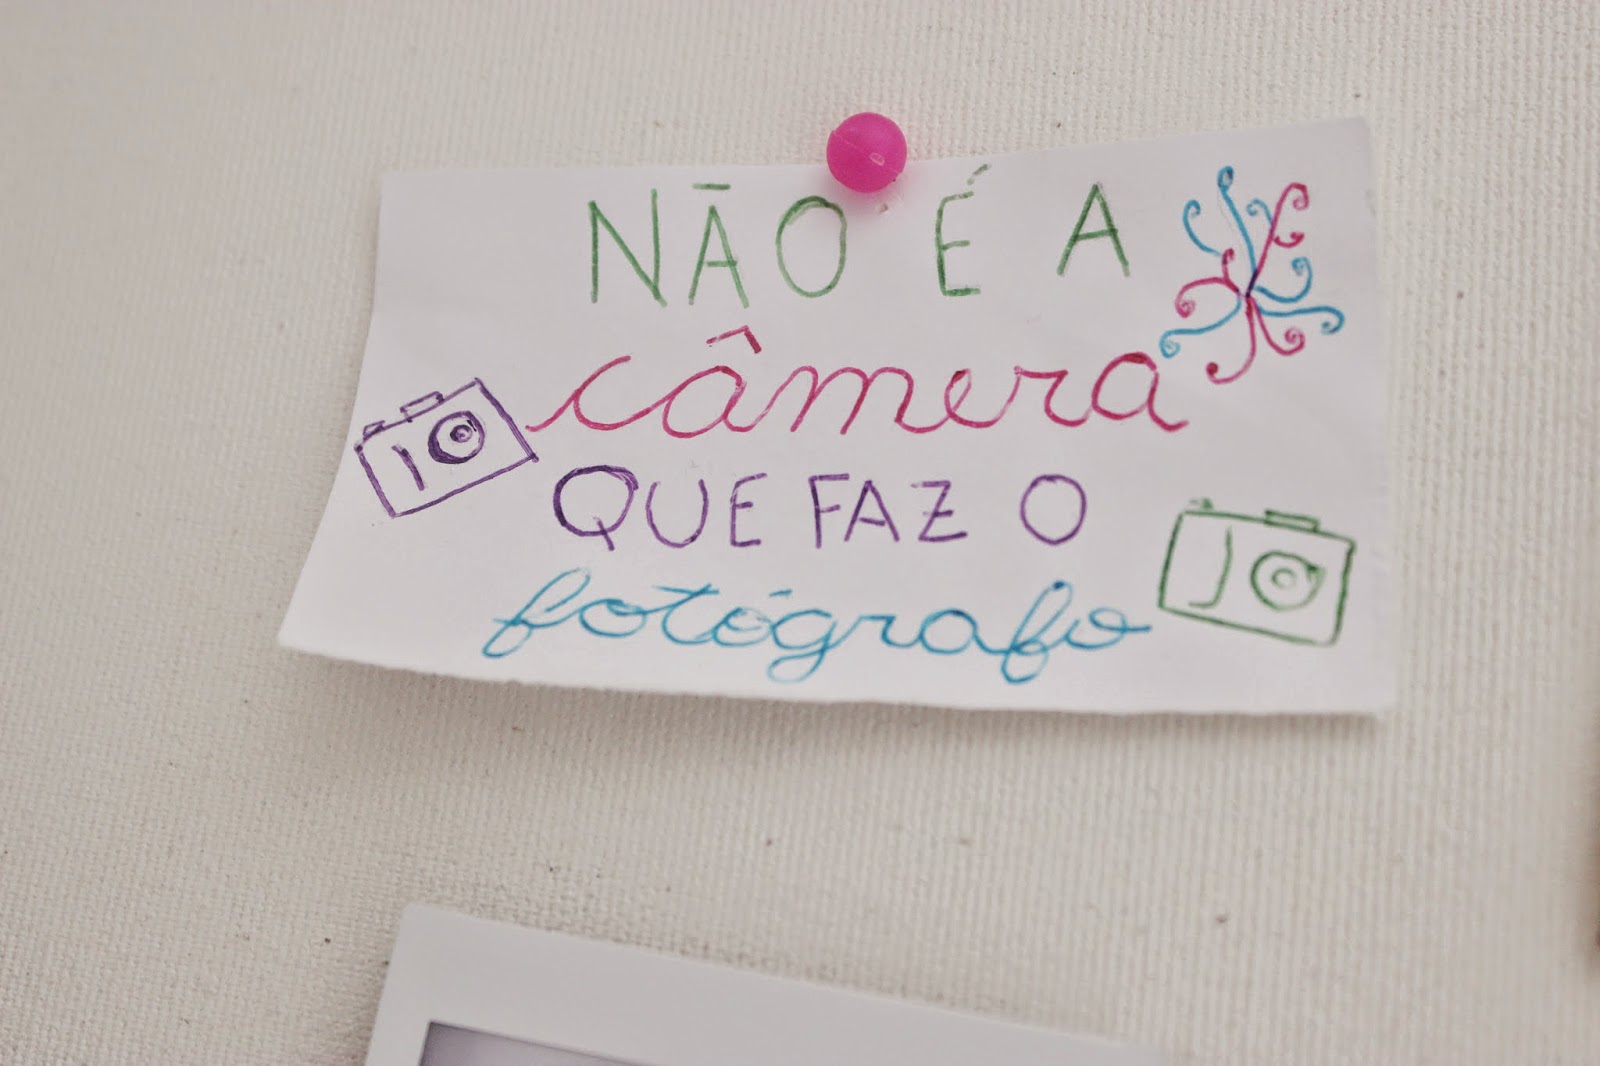 NÃO É A
câmera
QUE FAZ O
fotógrafo